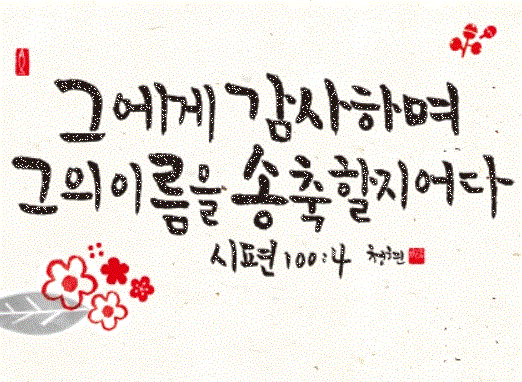 그에게 감사하며
그의 이름을 송축할지어다
시편 100:4